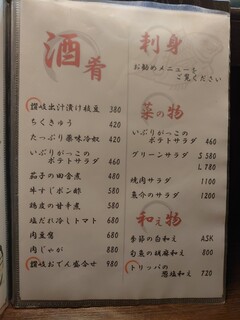 酒肴
讃岐出汁漬け枝豆 380
ちくきゅう 420
たっぷり薬味冷奴 420
いぶりがっこの
ポテトサラダ 460
茄子の田舎煮 480
牛すじポン酢 580
鶏皮の甘辛煮 580
塩だれ冷しトマト 680
肉豆腐 680
肉じゃが 880
讃岐おでん盛合せ 980
刺身
お勧めメニューを
ご覧ください
菜の物
いぶりがっこの
ポテトサラダ 460
グリーンサラダ S 580
L 780
焼肉サラダ 1100
魚介のサラダ 1200
和え物
季節の白和え ASK
旬魚の胡麻和え 800
トリッパの
葱塩和え 720